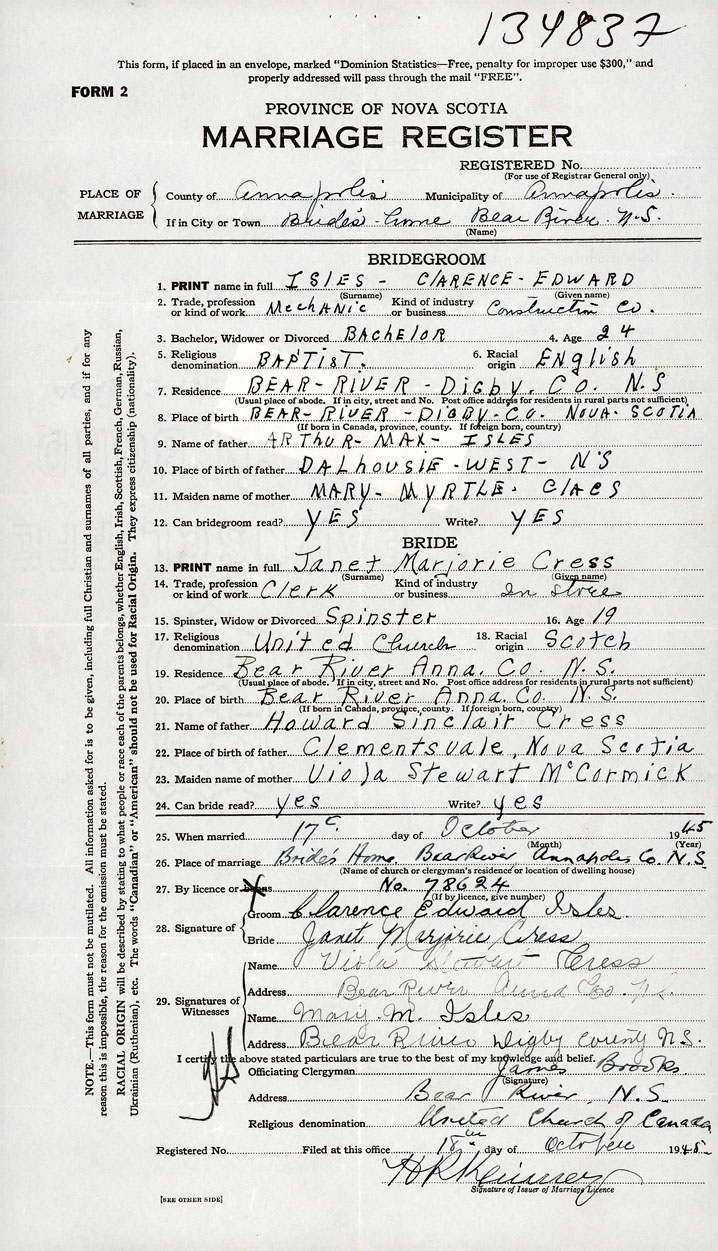 134837
This form, if placed in an envelope, marked "Dominion Statistics—Free, penalty for improper use $300," and
properly addressed will pass through the mail "FREE".
FORM 2
PROVINCE OF NOVA SCOTIA
MARRIAGE REGISTER
REGISTERED No.
(For use of Registrar General only)
PLACE OF MARRIAGE
County of Annapolis Municipality of Annapolis.
If in City or Town Bride's home Bear River. N.S.
(Name)
BRIDEGROOM
1. PRINT name in full ISLES - CLARENCE - EDWARD
(Surname) (Given name)
2. Trade, profession or kind of work MechANic Kind of industry or business Construction Co.
3. Bachelor, Widower or Divorced BAchElOR 4. Age 24
5. Religious denomination BAPTisT. 6. Racial origin ENglish
7. Residence BEAR-RIVER - Digby. CO. N.S
(Usual place of abode. If in city, street and No. Post office address for residents in rural parts not sufficient)
8. Place of birth BEAR-RIVER - DigBy-Co. NOVA-SCOTIA
(If born in Canada, province, county. If foreign born, country)
9. Name of father ARTHUR- MAX- ISLES
10. Place of birth of father DALhousiE-WEST- N'S
11. Maiden name of mother MARY- MYRTLE.
12. Can bridegroom read? YES Write? YES
BRIDE
13. PRINT name in full Janet Marjorie Cress
(Surname) (Given name)
14. Trade, profession or kind of work Clerk Kind of industry or business In Store
15. Spinster, Widow or Divorced Spinster 16. Age 19
17. Religious denomination United Church 18. Racial origin Scotch
19. Residence Bear River Anna. Co. N.S.
(Usual place of abode. If in city, street and No. Post office address for residents in rural parts not sufficient)
20. Place of birth Bear River Anna. Co. N.S.
(If born in Canada, province, county. If foreign born, country)
21. Name of father Howard Sinclair Cress
22. Place of birth of father Clementsvale, Nova Scotia
23. Maiden name of mother Viola Stewart McCormick
24. Can bride read? yes Write? yes
25. When married 17 day of October 1945
(Month) (Year)
26. Place of marriage Bride's Home. Bear River Annapolis Co. N.S
(Name of church or clergyman's residence or location of dwelling house)
27. By licence or banns No. 78624
(If by licence, give number)
28. Signature of
Groom Clarence Edward Isles.
Bride Janet Marjorie Cress
29. Signatures of Witnesses
Name Viola Stewart Cress
Address Bear River Anna Co. N.S.
Name Mary M. Isles
Address Bear River Digby County N.S.
I certify the above stated particulars are true to the best of my knowledge and belief.
Officiating Clergyman James Brooks.
(Signature)
Address Bear River, N.S.
Religious denomination United Church of Canada
Registered No. Filed at this office 18th day of October 1945.
Signature of Issuer of Marriage Licence
[SEE OTHER SIDE]
NOTE.—This form must not be mutilated. All information asked for is to be given, including full Christian and surnames of all parties, and if for any
reason this is impossible, the reason for the omission must be stated.
RACIAL ORIGIN will be described by stating to what people or race each of the parents belongs, whether English, Irish, Scottish, French, German, Russian,
Ukrainian (Ruthenian), etc. The words "Canadian" or "American" should not be used for Racial Origin. They express citizenship (nationality).